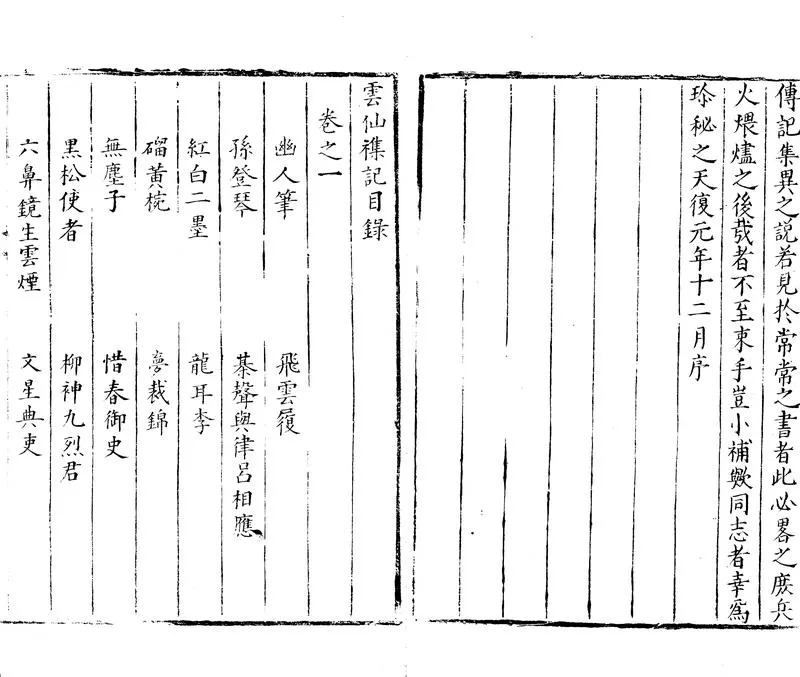 傳記集異之説若見於常常之書者此必畧之庶兵
火煨燼之後㦲者不至束手豈小補歟同志者幸爲
珎秘之天復元年十二月序
雲仙襍記目錄
卷之一
幽人筆 飛雲履
孫登琴 棊聲與律呂相應
紅白二墨 龍耳李
磂黃椀 夣裁錦
無塵子 惜春御史
黑松使者 柳神九烈君
六鼻鏡生雲煙 文星典吏